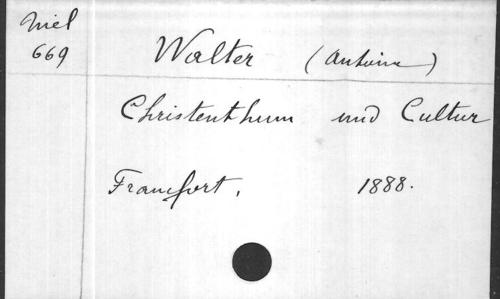 Miel
669
Walter (Antoine)
Christenthum und Cultur
Francfort, 1888.